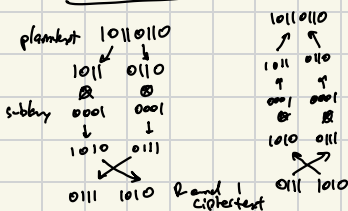 plaintext 10110110
1011 0110
⊗ ⊗
subkey 0001 0001
1010 0111
0111 1010
Round 1
ciphertext
10110110
1011 0110
0001 0001
⊗ ⊗
1010 0111
0111 1010